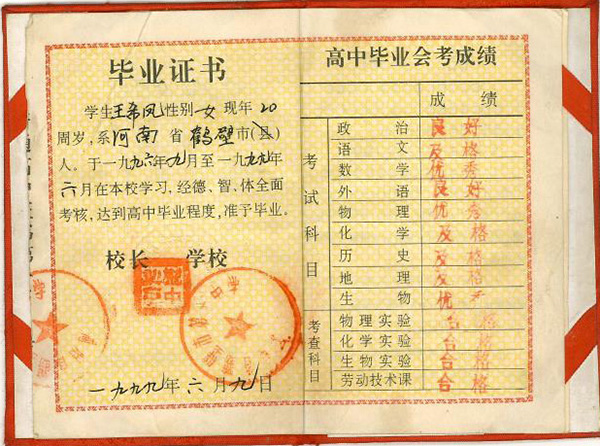 毕业证书
学生王希凤性别女现年20
周岁,系河南省鹤壁市(县)
人。于一九九六年九月至一九九九年
六月在本校学习,经德、智、体全面
考核,达到高中毕业程度,准予毕业。
校长 学校
一九九九年六月九日
高中毕业会考成绩
成绩
考试科目
政治 良好
语文 及格
数学 优秀
外语 良好
物理 优秀
化学 及格
历史 及格
地理 及格
生物 优
考查科目
物理实验 合格
化学实验 合格
生物实验 合格
劳动技术课 合格